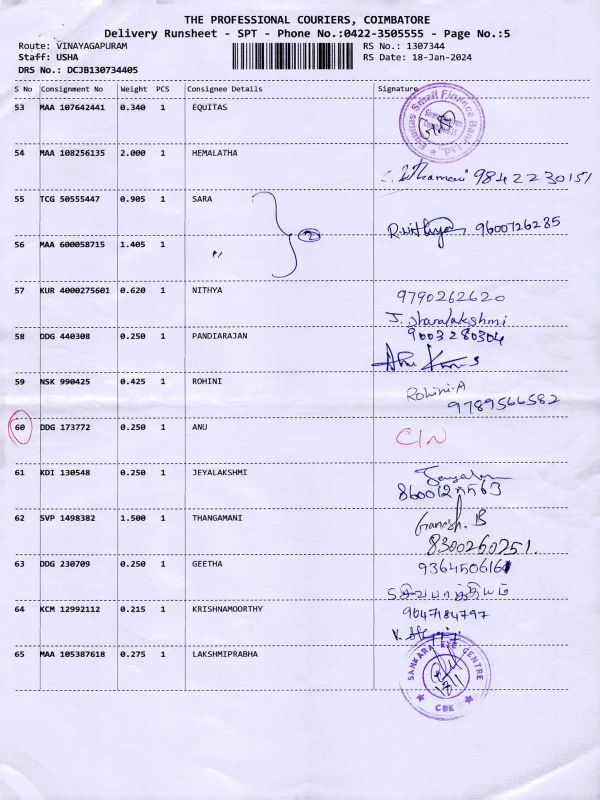 THE PROFESSIONAL COURIERS, COIMBATORE
Delivery Runsheet - SPT - Phone No.:0422-3505555 - Page No.:5
Route: VINAYAGAPURAM RS No.: 1307344
Staff: USHA RS Date: 18-Jan-2024
DRS No.: DCJB130734405
S No Consignment No Weight PCS Consignee Details Signature
53 MAA 107642441 0.340 1 EQUITAS
Equitas Small Finance Bank Ltd.,
54 MAA 108256135 2.000 1 HEMALATHA
9842230151
55 TCG 50555447 0.905 1 SARA
2
R.vithya 9600726285
56 MAA 600058715 1.405 1 "
57 KUR 4000275601 0.620 1 NITHYA
9790262620
58 DDG 440308 0.250 1 PANDIARAJAN
9003280304
59 NSK 990425 0.425 1 ROHINI
Rohini.A
9789566582
60 DDG 173772 0.250 1 ANU
C/N
61 KDI 130548 0.250 1 JEYALAKSHMI
62 SVP 1498382 1.500 1 THANGAMANI
Ganesh.B
8300260251.
63 DDG 230709 0.250 1 GEETHA
9364506161
64 KCM 12992112 0.215 1 KRISHNAMOORTHY
9047184797
65 MAA 105387618 0.275 1 LAKSHMIPRABHA
SANKARA EYE CENTRE
CBE